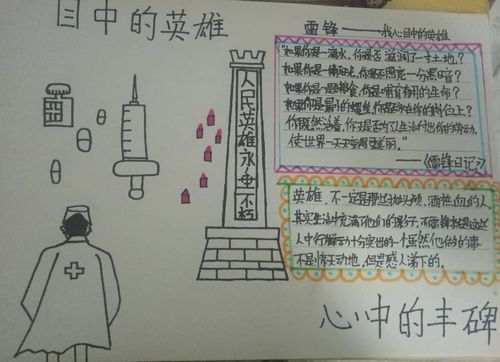 目中的英雄
雷锋——我心目中的英雄
"如果你是一滴水,你是否滋润了一寸土地?
如果你是一缕阳光,你是否照亮一分黑暗?
如果你是一颗粮食,你是否哺育有用的生命?
如果你是最小的螺丝,你是否永在你的岗位上?
你既然活着,你又是否为了人生付出你的劳动,
使世界一天天变得更美丽。"
——《雷锋日记》
人民英雄永垂不朽
英雄,不一定是那些抛头颅,洒热血的人
其实生活中充满他们的影子,而雷锋就是这些
人中行的十分突出的一个虽然他做的事
不是惊天动地,但是感人涕下的。
心中的丰碑